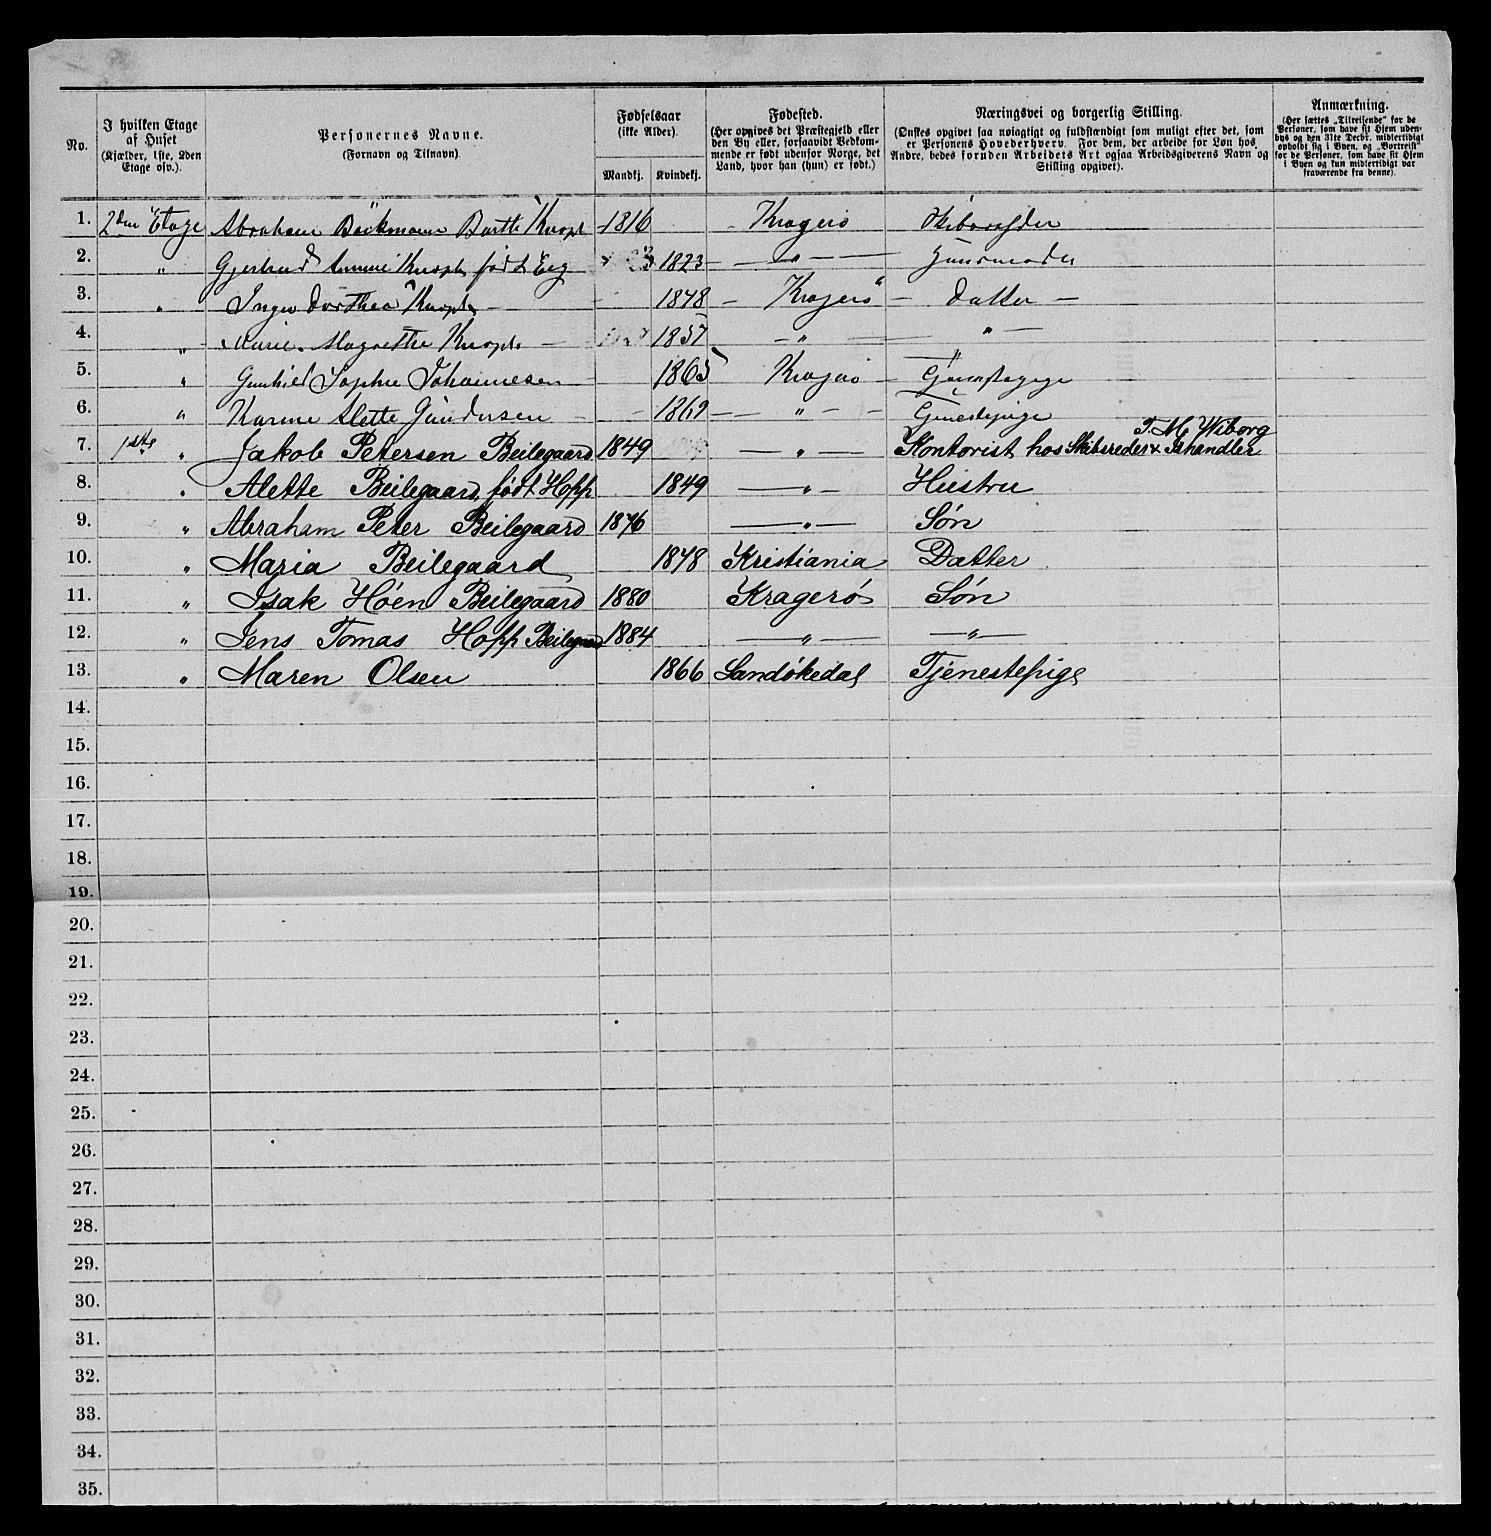 No. I hvilken Etage af Huset (Kjælder, 1ste, 2den Etage osv.). Personernes Navne. (Fornavn og Tilnavn) Fødselsaar (ikke Alder). Mandkj. Kvindekj. Fødested. (Her opgives det Præstegjeld eller den By eller, forsaavidt Vedkommende er født udenfor Norge, det Land, hvor han (hun) er født.) Næringsvei og borgerlig Stilling. (Ønskes opgivet saa nøiagtigt og fuldstændigt som muligt efter det, som er Personens Hovederhverv. For dem, der arbeide for Løn hos Andre, bedes foruden Arbeidets Art ogsaa Arbeidsgiverens Navn og Stilling opgivet). Anmærkning. (Her sættes „Tilreisende" for de Personer, som have sit Hjem udenbys og den 31te Decbr. midlertidigt opholdt sig i Byen, og „Bortreist" for de Personer, som have sit Hjem i Byen og kun midlertidigt var fraværende fra denne).
1. 2den Etage Abraham Böckmann Barth Knoph 1816 Kragerö Skibsreder
2. " Gjertrud Knoph født Eeg 1823 — " — Huusmoder
3. " Inger Dorthea Knoph — 1848 — Kragerö — Datter —
4. " Marie Magrethe Knoph — 1857 — " — " —
5. " Gunhild Sophie Johannesen 1865 Kragerö —
6. " Karine Alette Gundersen — 1869 — " — Tjenestepige
7. 1ste " Jakob Petersen Beilegaard 1849 — " — Kontorist hos Skibsreder & Ishandler J. M. Wiborg
8. " Alette Beilegaard, født Hopp 1849 — " — Hustru
9. " Abraham Peter Beilegaard 1876 — " — Søn
10. " Maria Beilegaard 1878 Kristiania Datter
11. " Isak Höen Beilegaard 1880 Kragerö Søn
12. " Jens Tomas Hopp Beilegaard 1884 — " — — " —
13. " Maren Olsen 1866 Sandøkedal Tjenestepige
14.
15.
16.
17.
18.
19.
20.
21.
22.
23.
24.
25.
26.
27.
28.
29.
30.
31.
32.
33.
34.
35.